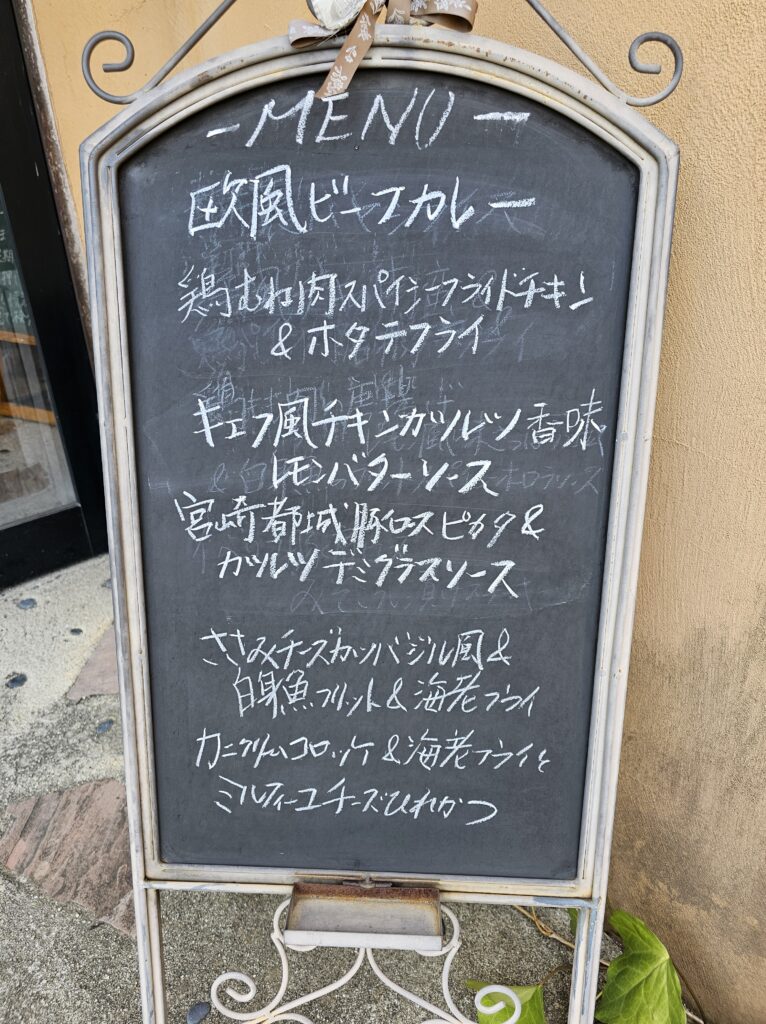 -MENU-
欧風ビーフカレー
鶏むね肉スパイシーフライドチキン
&ホタテフライ
キエフ風チキンカツレツ香味
レモンバターソース
宮崎都城豚ロースピカタ&
カツレツデミグラスソース
ささみチーズカツバジル風&
白身魚フリット&海老フライ
カニクリームコロッケ&海老フライと
ミルフィーユチーズひれかつ